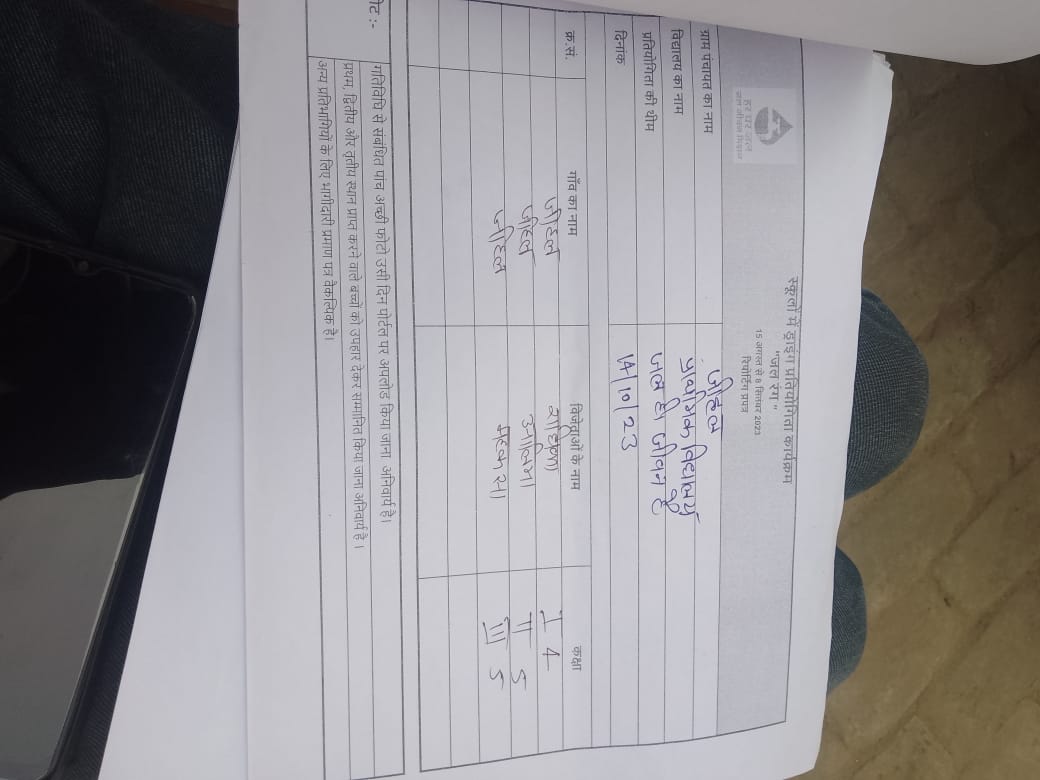 हर घर जल
जल जीवन मिशन
स्कूलों में ड्राइंग प्रतियोगिता कार्यक्रम
"जल रंग"
15 अगस्त से 8 सितम्बर 2023
रिपोर्टिंग प्रपत्र
ग्राम पंचायत का नाम जीहल
विद्यालय का नाम प्राथमिक विद्यालय
प्रतियोगिता की थीम जल ही जीवन है
दिनांक 14/10/23
क्र.सं. गाँव का नाम विजेताओं के नाम कक्षा
जीहल I 4
जीहल II 5
जीहल III 5
नोट :- गतिविधि से संबंधित पांच अच्छी फोटो उसी दिन पोर्टल पर अपलोड किया जाना अनिवार्य है।
प्रथम, द्वितीय और तृतीय स्थान प्राप्त करने वाले बच्चों को उपहार देकर सम्मानित किया जाना अनिवार्य है।
अन्य प्रतिभागियों के लिए भागीदारी प्रमाण पत्र वैकल्पिक है।